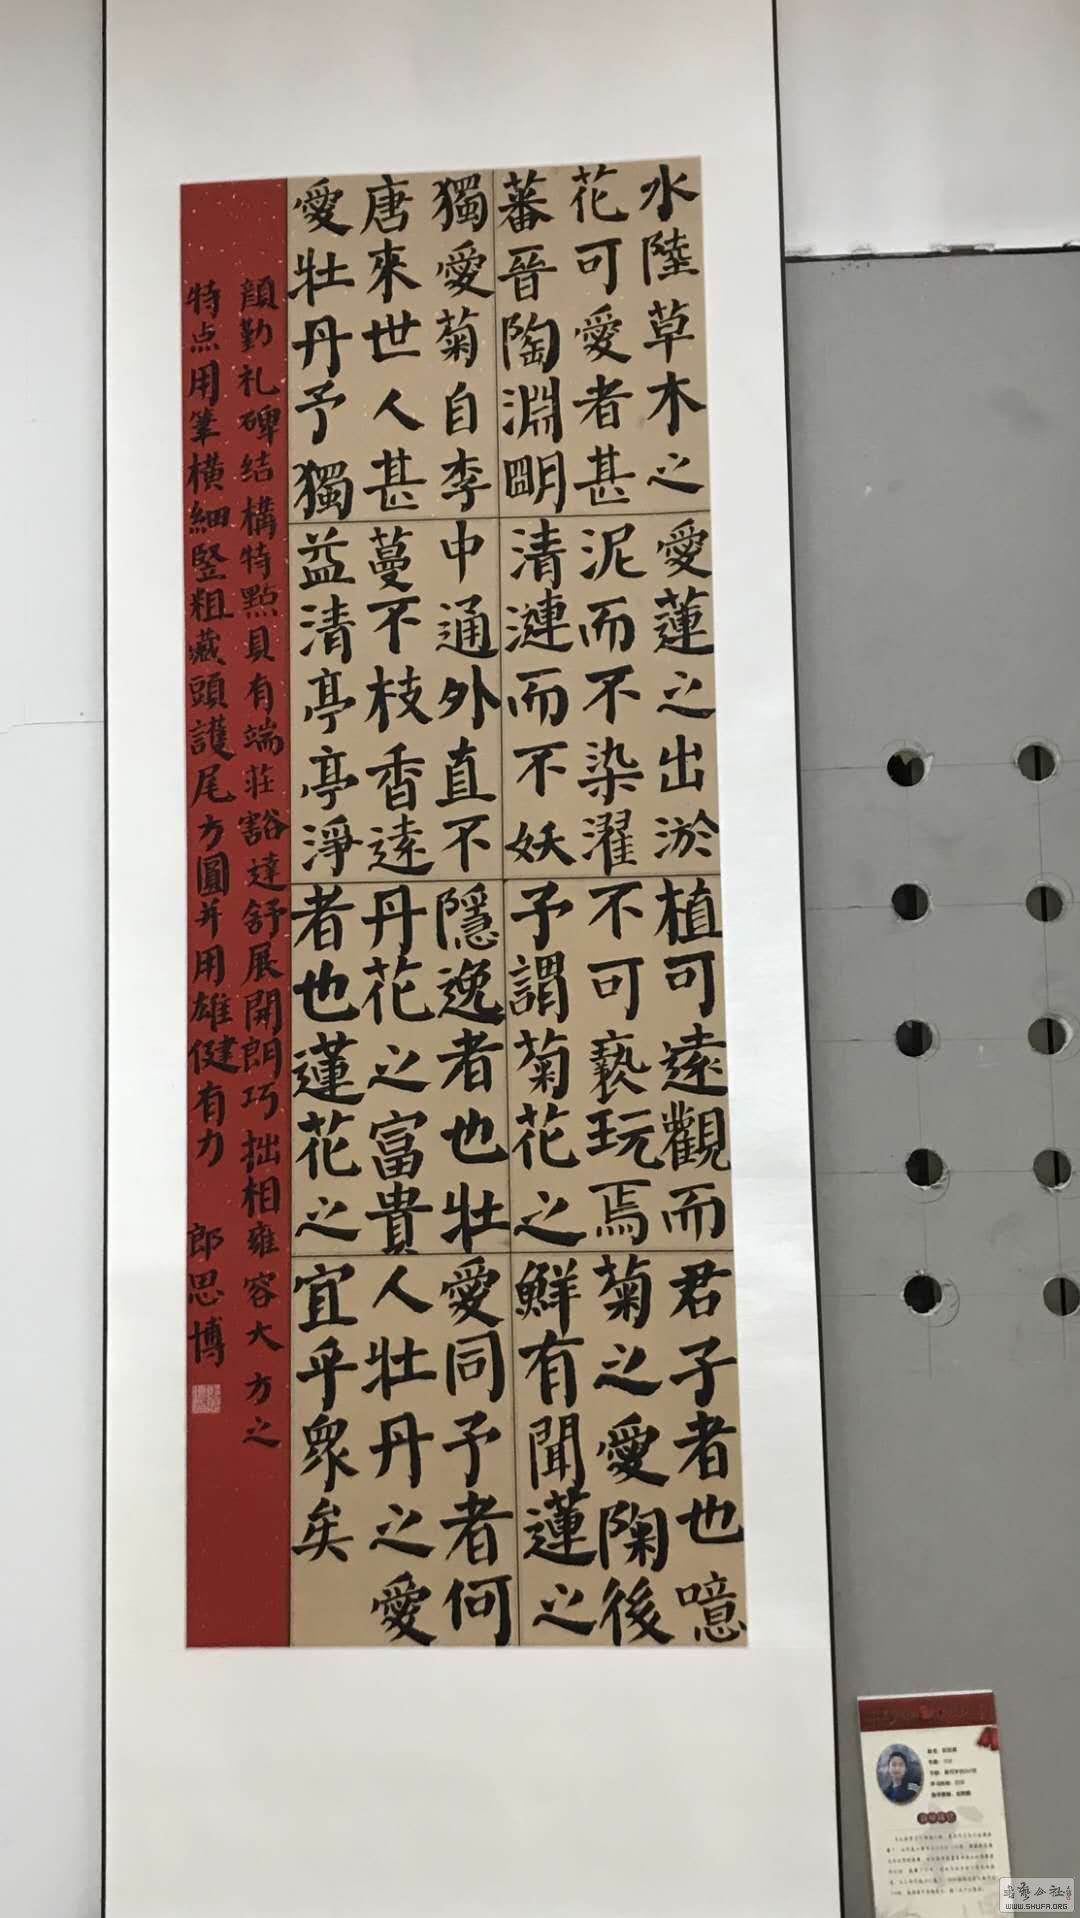 水陸草木之
花可愛者甚
蕃晉陶淵明
獨愛菊自李
唐來世人甚
愛牡丹予獨
愛蓮之出淤
泥而不染濯
清漣而不妖
中通外直不
蔓不枝香遠
益清亭亭淨
植可遠觀而
不可褻玩焉
予謂菊花之
隱逸者也牡
丹花之富貴
者也蓮花之
君子者也噫
菊之愛陶後
鮮有聞蓮之
愛同予者何
人牡丹之愛
宜乎眾矣
顏勤礼碑结構特點具有端莊豁達舒展開朗巧拙相雍容大方之
特点用筆橫細竪粗藏頭護尾方圓并用雄健有力 郎思博
WWW.SHUFA.ORG